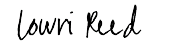 Lowri Reed